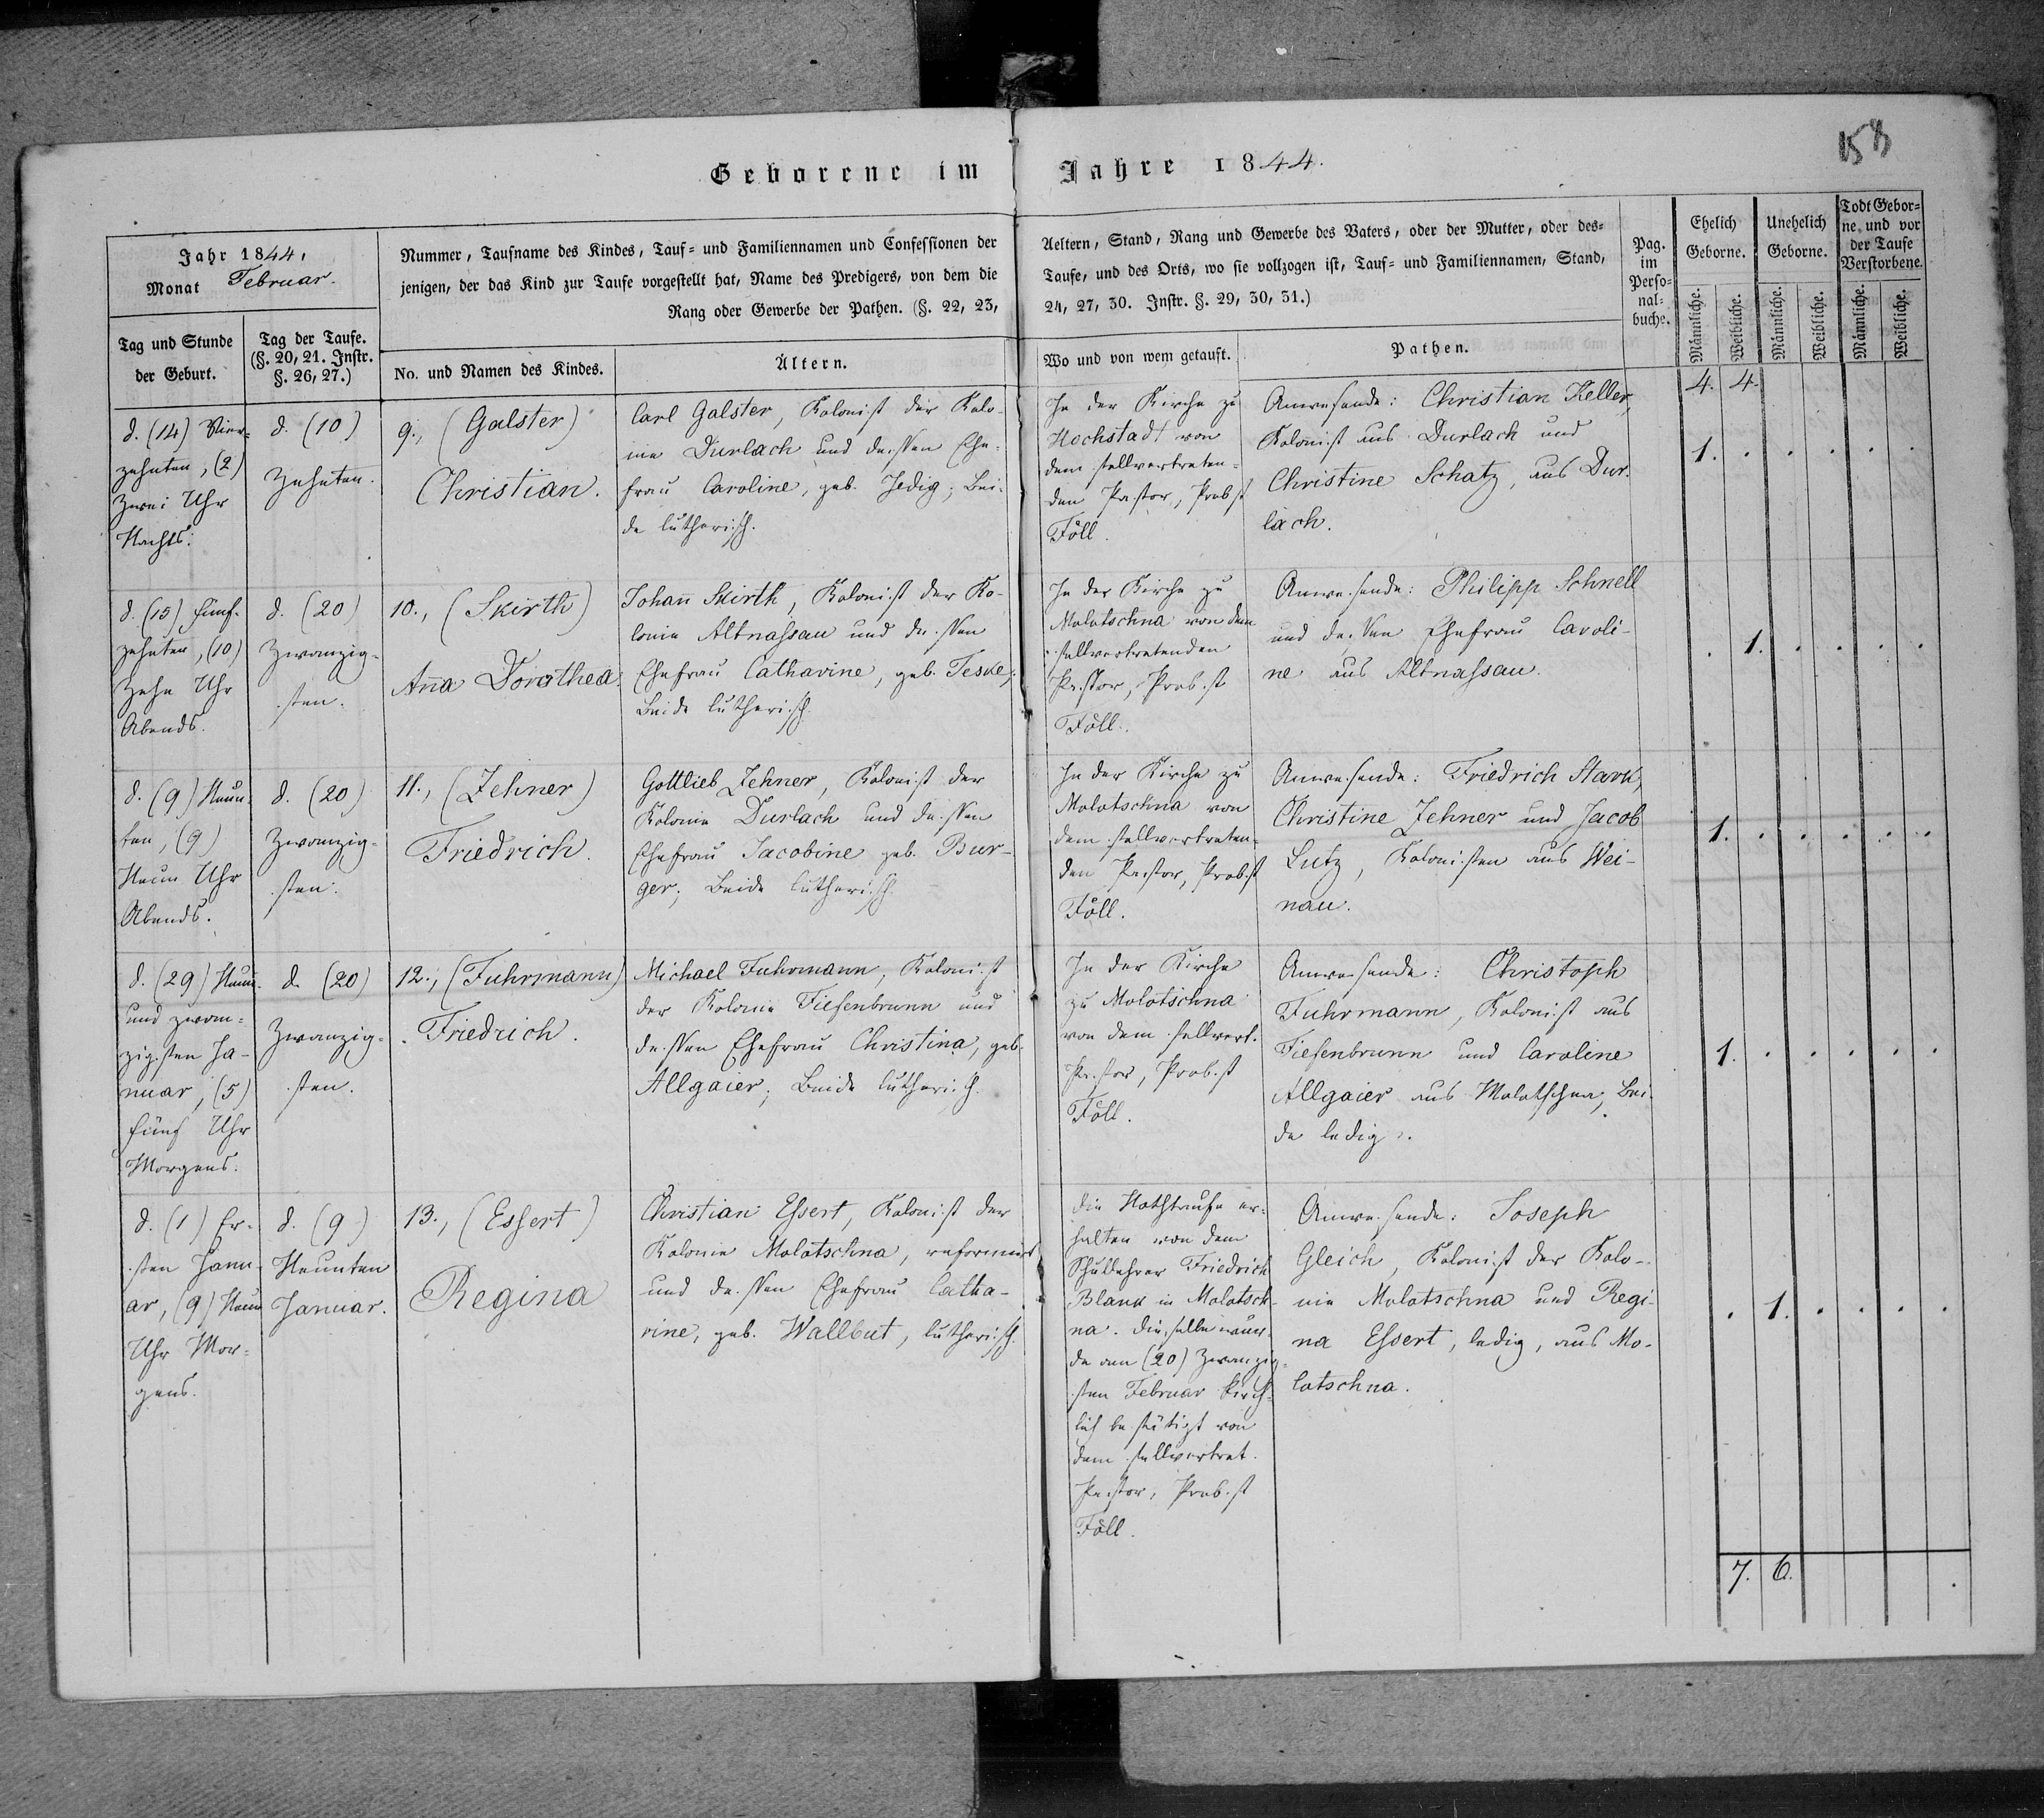 158
Geborene im Jahre 1844.
Jahr 1844,
Monat Februar.
Nummer, Taufname des Kindes, Tauf- und Familiennamen und Confessionen der
jenigen, der das Kind zur Taufe vorgestellt hat, Name des Predigers, von dem die
Rang oder Gewerbe der Pathen. (§. 22, 23,
Aeltern, Stand, Rang und Gewerbe des Vaters, oder der Mutter, oder des-
Taufe, und des Orts, wo sie vollzogen ist, Tauf- und Familiennamen, Stand,
24, 27, 30. Instr. §. 29, 30, 31.)
Pag.
im
Perso-
nal-
buche.
Ehelich
Geborne.
Unehelich
Geborne.
Todt Gebor-
ne und vor
der Taufe
Verstorbene.
Männliche.
Weibliche.
Männliche.
Weibliche.
Männliche.
Weibliche.
Tag und Stunde
der Geburt.
Tag der Taufe.
(§. 20, 21. Instr.
§. 26, 27.)
No. und Namen des Kindes.
Ältern.
Wo und von wem getauft.
Pathen.
4. 4.
d. (14) Vier-
zehnten, (2)
Zwei Uhr
Nachts.
d. (10)
Zehnten.
9., (Galster)
Christian.
Carl Galster, Kolonist der Kolo-
nie Durlach und dessen Ehe-
frau Caroline, geb. Jedig; Bei-
de lutherisch.
In der Kirche zu
Hochstadt von
dem stellvertreten-
den Pastor, Probst
Föll.
Anwesende: Christian Keller,
Kolonist aus Durlach und
Christine Schatz, aus Dur-
lach.
1. . . . . .
d. (15) Fünf-
zehnten, (10)
Zehn Uhr
Abends.
d. (20)
Zwanzig-
sten.
10., (Skirth)
Aña Dorothea.
Johañ Skirth, Kolonist der Ko-
lonie Altnassau und dessen
Ehefrau Catharine, geb. Teske;
Beide lutherisch.
In der Kirche zu
Molotschna von dem
stellvertretenden
Pastor, Probst
Föll.
Anwesende: Philipp Schnell
und dessen Ehefrau Caroli-
ne aus Altnassau.
. 1. . . . .
d. (9) Neun-
ten, (9)
Neun Uhr
Abends.
d. (20)
Zwanzig-
sten.
11., (Zehner)
Friedrich.
Gottlieb Zehner, Kolonist der
Kolonie Durlach und dessen
Ehefrau Jacobine geb. Bur-
ger; Beide lutherisch.
In der Kirche zu
Molotschna von
dem stellvertreten-
den Pastor, Probst
Föll.
Anwesende: Friedrich Stark,
Christine Zehner und Jacob
Lutz, Kolonisten aus Wei-
nau.
1. . . . . .
d. (29) Neun-
und zwan-
zigsten Ja-
nuar, (5)
fünf Uhr
Morgens.
d. (20)
Zwanzig-
sten.
12., (Fuhrmann)
Friedrich.
Michael Fuhrmann, Kolonist
der Kolonie Tiefenbrunn und
dessen Ehefrau Christina, geb.
Allgaier; Beide lutherisch.
In der Kirche
zu Molotschna
von dem stellvert.
Pastor, Probst
Föll.
Anwesende: Christoph
Fuhrmann, Kolonist aus
Tiefenbrunn und Caroline
Allgaier aus Molotschna, Bei-
de ledig.
1. . . . . .
d. (1) Er-
sten Janu-
ar, (9) Neun
Uhr Mor-
gens.
d. (9)
Neunten
Januar.
13., (Essert)
Regina
Christian Essert, Kolonist der
Kolonie Molotschna, reformirt
und dessen Ehefrau Catha-
rine, geb. Wallbut, lutherisch.
Die Nothtaufe er-
halten von dem
Schullehrer Friedrich
Blank in Molotsch-
na. Dieselbe wur-
de am (20) Zwanzig-
sten Februar kirch-
lich bestätigt von
dem stellvertret.
Pastor, Probst
Föll.
Anwesende: Joseph
Gleich, Kolonist der Kolo-
nie Molotschna und Regi-
na Essert, ledig, aus Mo-
lotschna.
. 1. . . . .
7. 6.